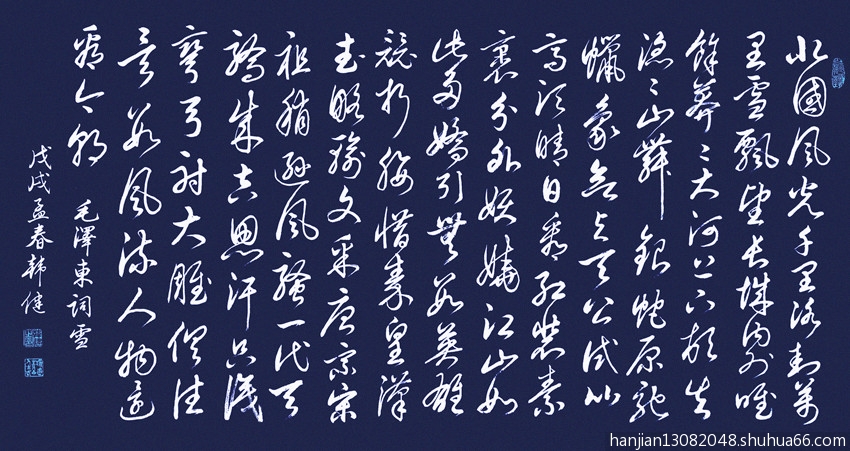 北國風光千里冰封萬
里雪飄望長城內外唯
餘莽〻大河上下頓失
滔〻山舞銀蛇原馳
蠟象欲与天公試比
高須晴日看紅裝素
裹分外妖嬈江山如
此多嬌引無數英雄
競折腰惜秦皇漢
武略輸文采唐宗宋
祖稍遜風騷一代天
驕成吉思汗只識
彎弓射大雕俱往
矣數風流人物還
看今朝
毛澤東詞雪
戊戌孟春韓健
hanjian13082048.shuhua66.com